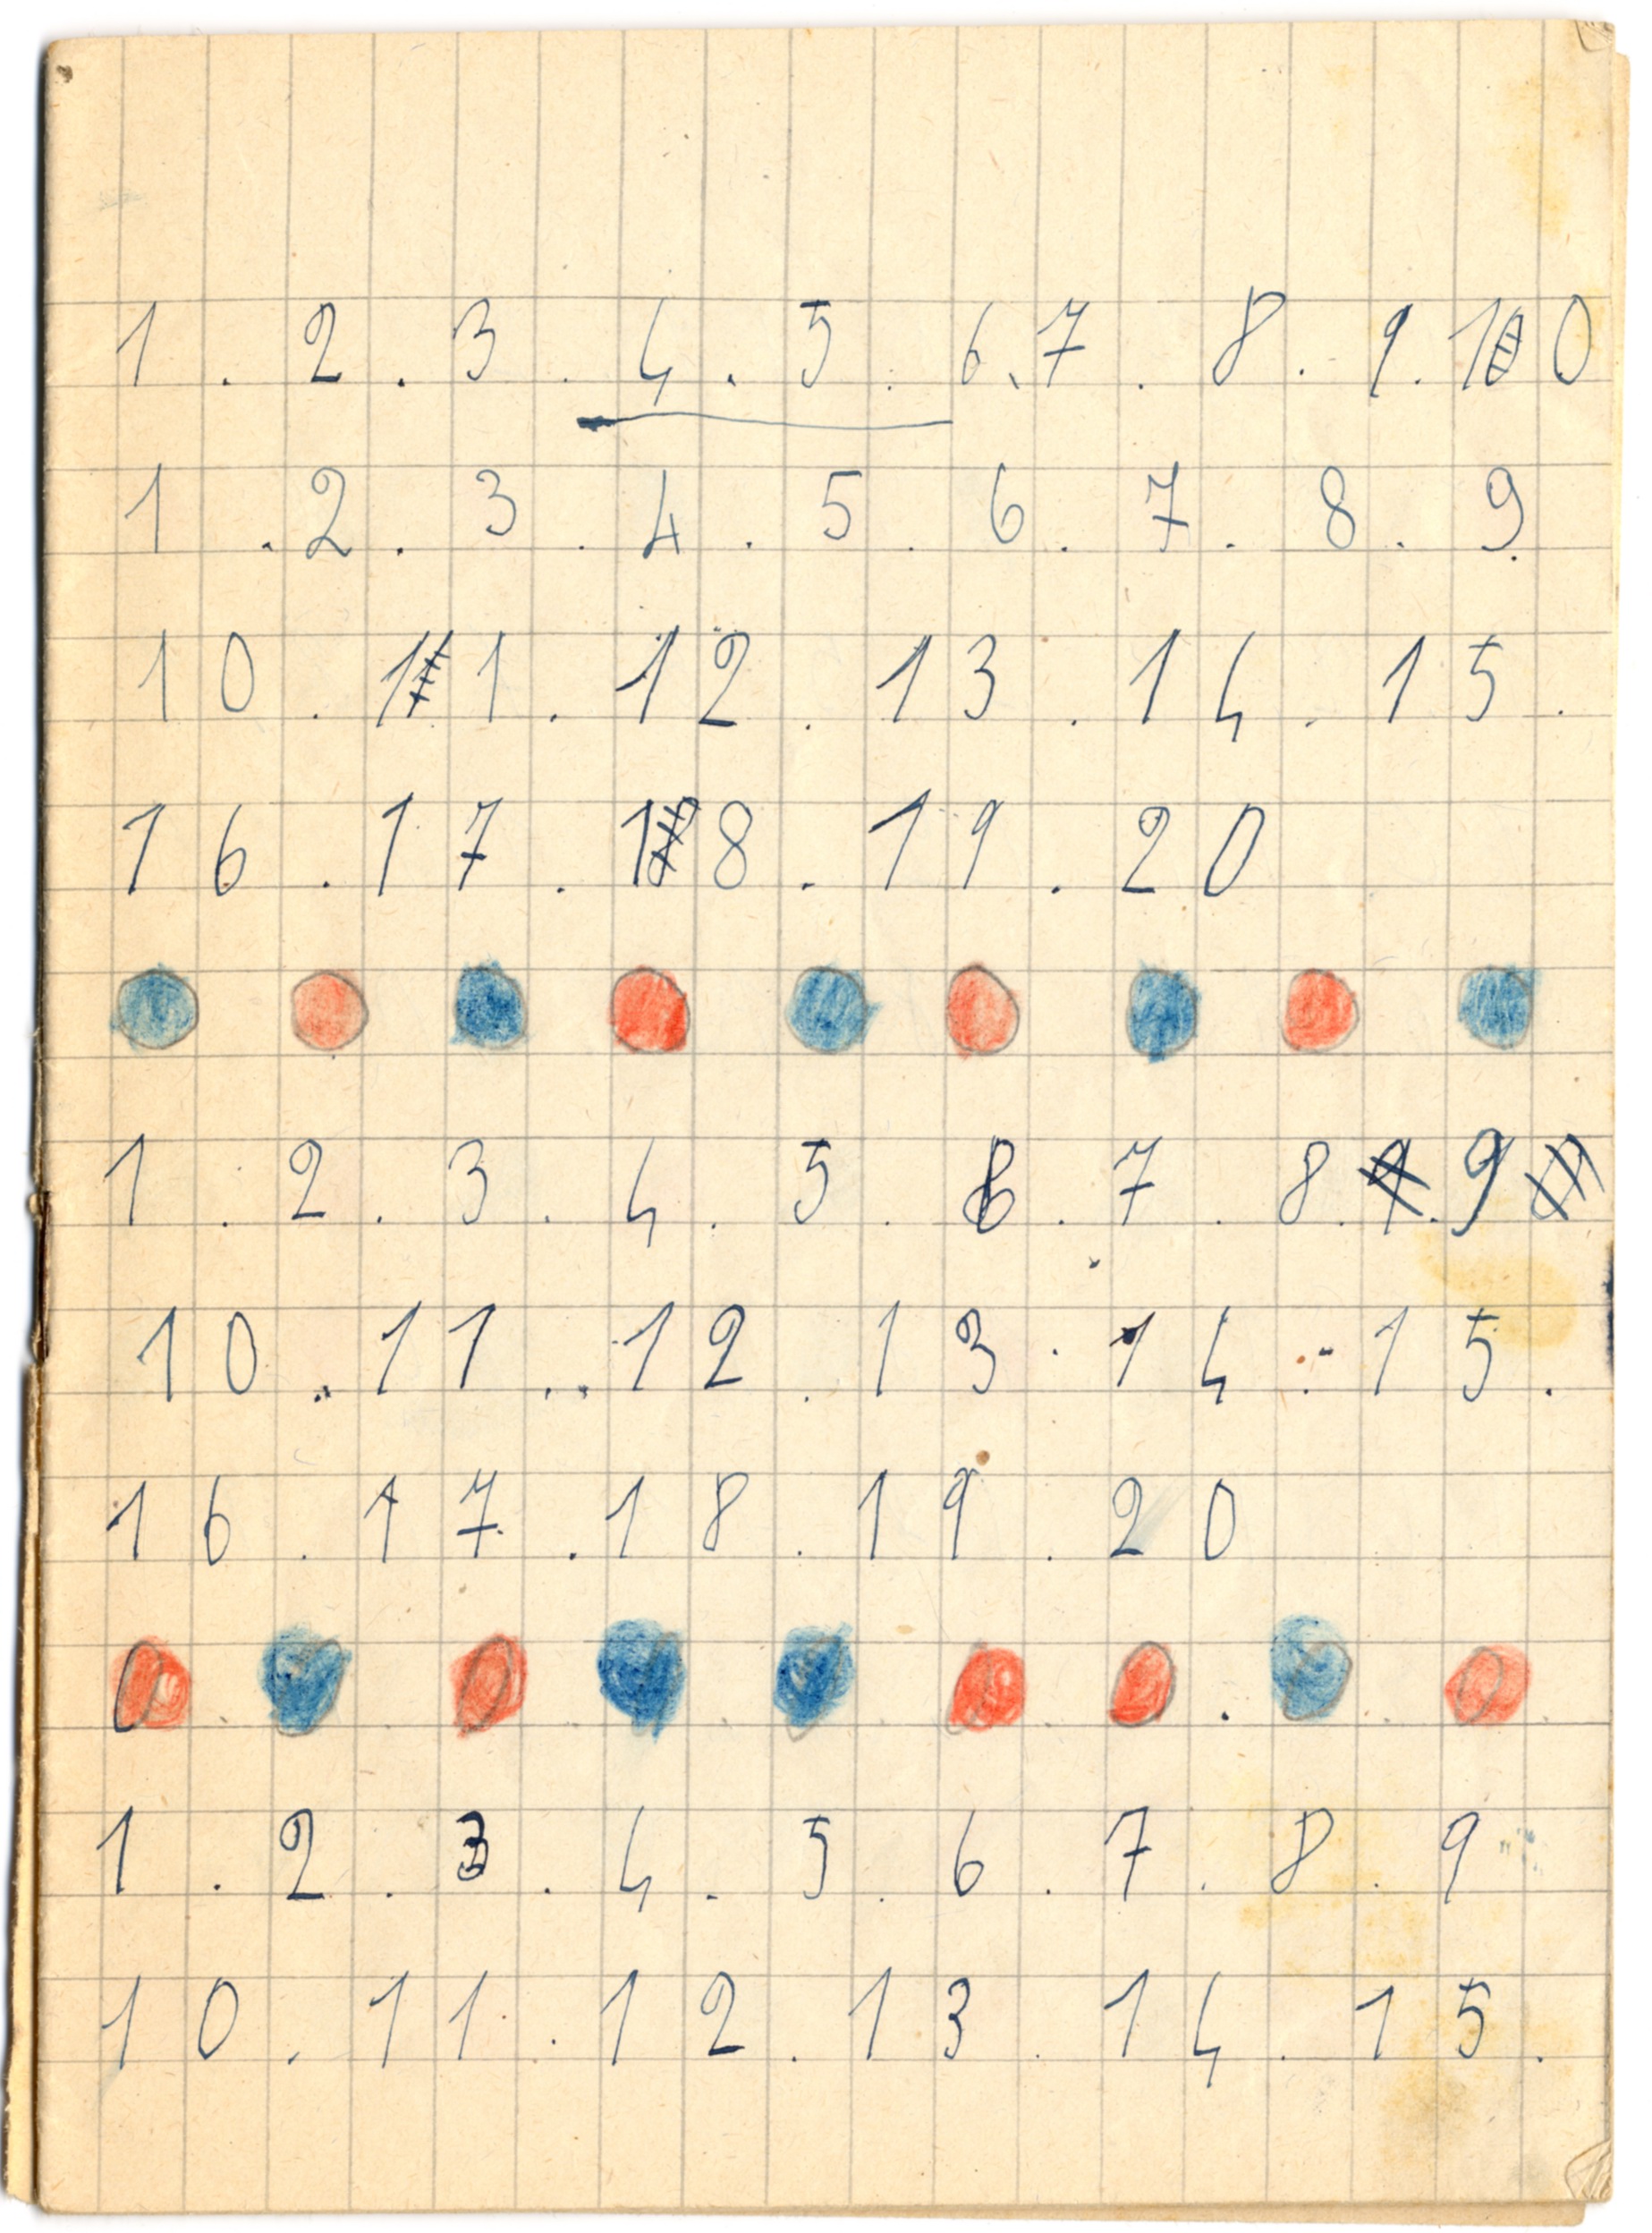 1 . 2 . 3 . 4 . 5 . 6 . 7 . 8 . 9 . 10
1 . 2 . 3 . 4 . 5 . 6 . 7 . 8 . 9 .
10 . 11 . 12 . 13 . 14 . 15 .
16 . 17 . 18 . 19 . 20
1 . 2 . 3 . 4 . 5 . 6 . 7 . 8 . 9
10 . 11 . . 12 . 13 . 14 . 15 .
16 . 17 . 18 . 19 . 20
1 . 2 . 3 . 4 . 5 . 6 . 7 . 8 . 9
10 . 11 . 12 . 13 . 14 . 15 .